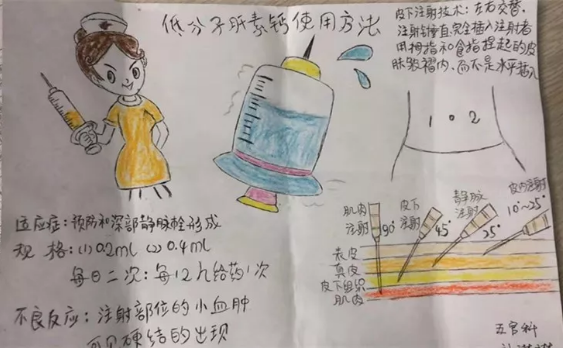 低分子肝素钙使用方法
皮下注射技术：左右交替，
注射针垂直、完全插入注射者
用拇指和食指捏起的皮
肤皱褶内，而不是水平插入
1 0 2
肌肉
注射
90°
皮下
注射
45°
静脉
注射
25°
皮内注射
10°~25°
表皮
真皮
皮下组织
肌肉
适应症：预防和深部静脉栓形成
规 格：(1) 0.2ml (2) 0.4ml
每日二次：每12h给药1次
不良反应：注射部位的小血肿
可见硬结的出现
五官科